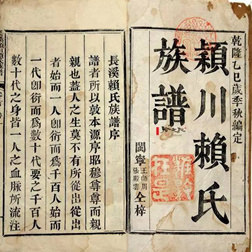 乾隆乙巳歲季秋編定
潁川賴氏
族譜
閩寧
全梓
長溪賴氏族譜序
譜者所以敦本源序昭穆尊尊而親
親也蓋人之生莫不有所從出從出
者始而一人卽衍而爲千百人始而
一代卽衍而爲數十代要之千百人
數十代之身皆一人之血脈所流注